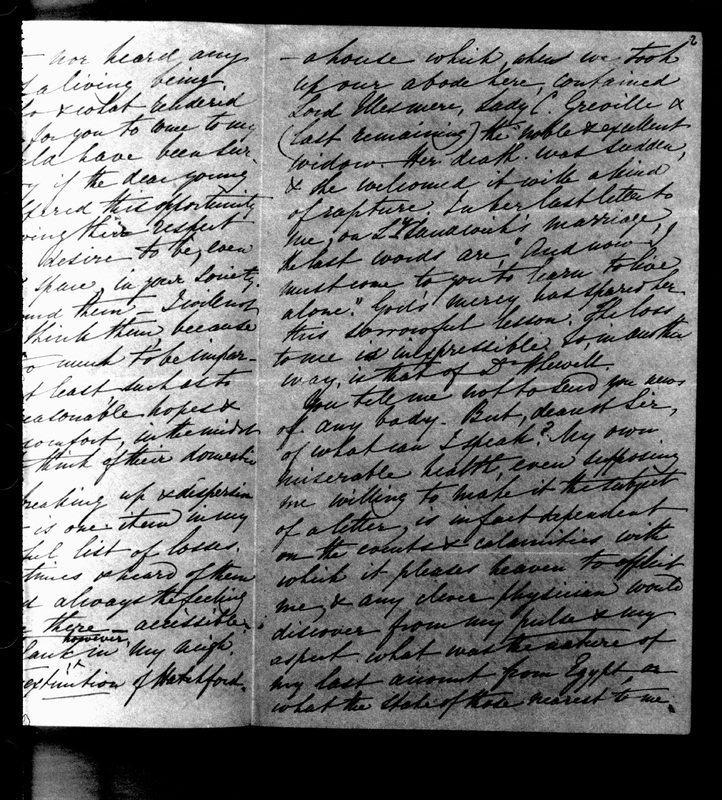 nor heard any
a living being,
& what rendered
for you to come to my
have been sur-
if the dear young
this opportunity
their respect
desire to be, even
space, in your society.
them — I would not
think them, because
much to be impar-
at least such as to
reasonable hopes &
comfort, in the midst
think of their domestic
breaking up & dispersion
is one item in my
list of losses.
times & heard of them
always the feeling
there — accessible
however,
in my neigh.
extinction of Hatchford.
2
- a house which, when we took
up our abode here, contained
Lord Ellesmere, Lady C. Greville &
(last remaining) the noble & excellent
widow. Her death was sudden,
& she welcomed it with a kind
of rapture. In her last letter to
me, on Ly Sandwich's marriage,
the last words are, "And now I
must come to you to learn to live
alone." God's mercy has spared her
this sorrowful lesson. The loss
to me is inexpressible. So in another
way, is that of Dr Whewell.
You tell me not to send you news
of any body. But, dearest Sir,
of what can I speak? My own
miserable health, even supposing
me willing to make it the subject
of a letter, is in fact dependent
on the events & calamities with
which it pleases heaven to afflict
me, & any clever physician would
discover from my pulse & my
aspect what was the nature of
my last account from Egypt, or
what the state of those nearest to me.